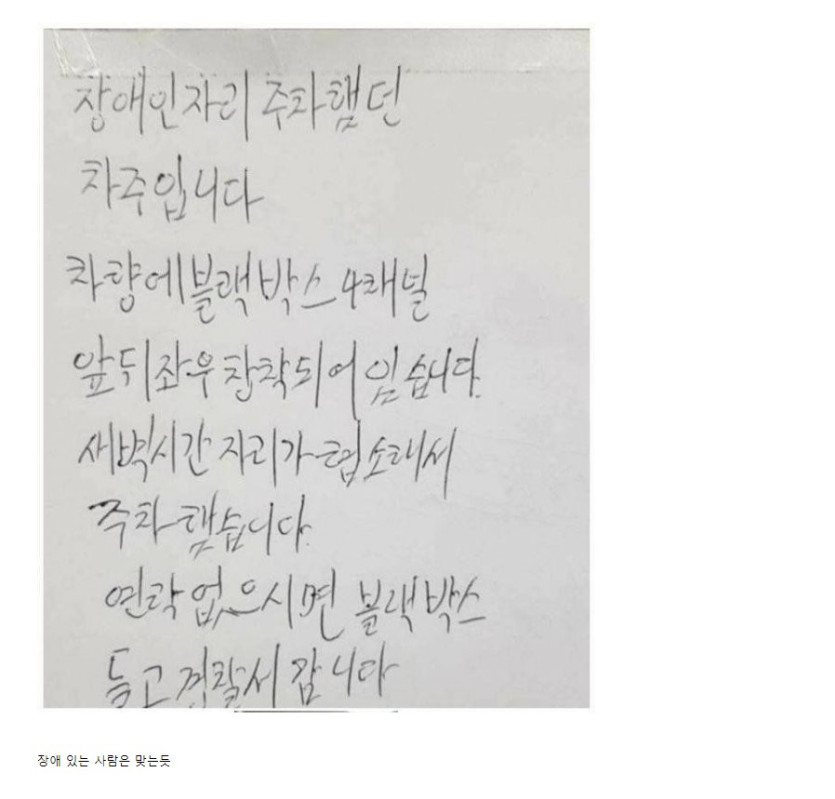 장애인자리 주차햇던
차주입니다
차량에블랙박스 4채널
앞뒤좌우 장착되어 잇습니다.
새벽시간 자리가 협소래서
주차 햇습니다.
연락 없으시면 블랙박스
들고 경찰서 갑니다
장애 있는 사람은 맞는듯